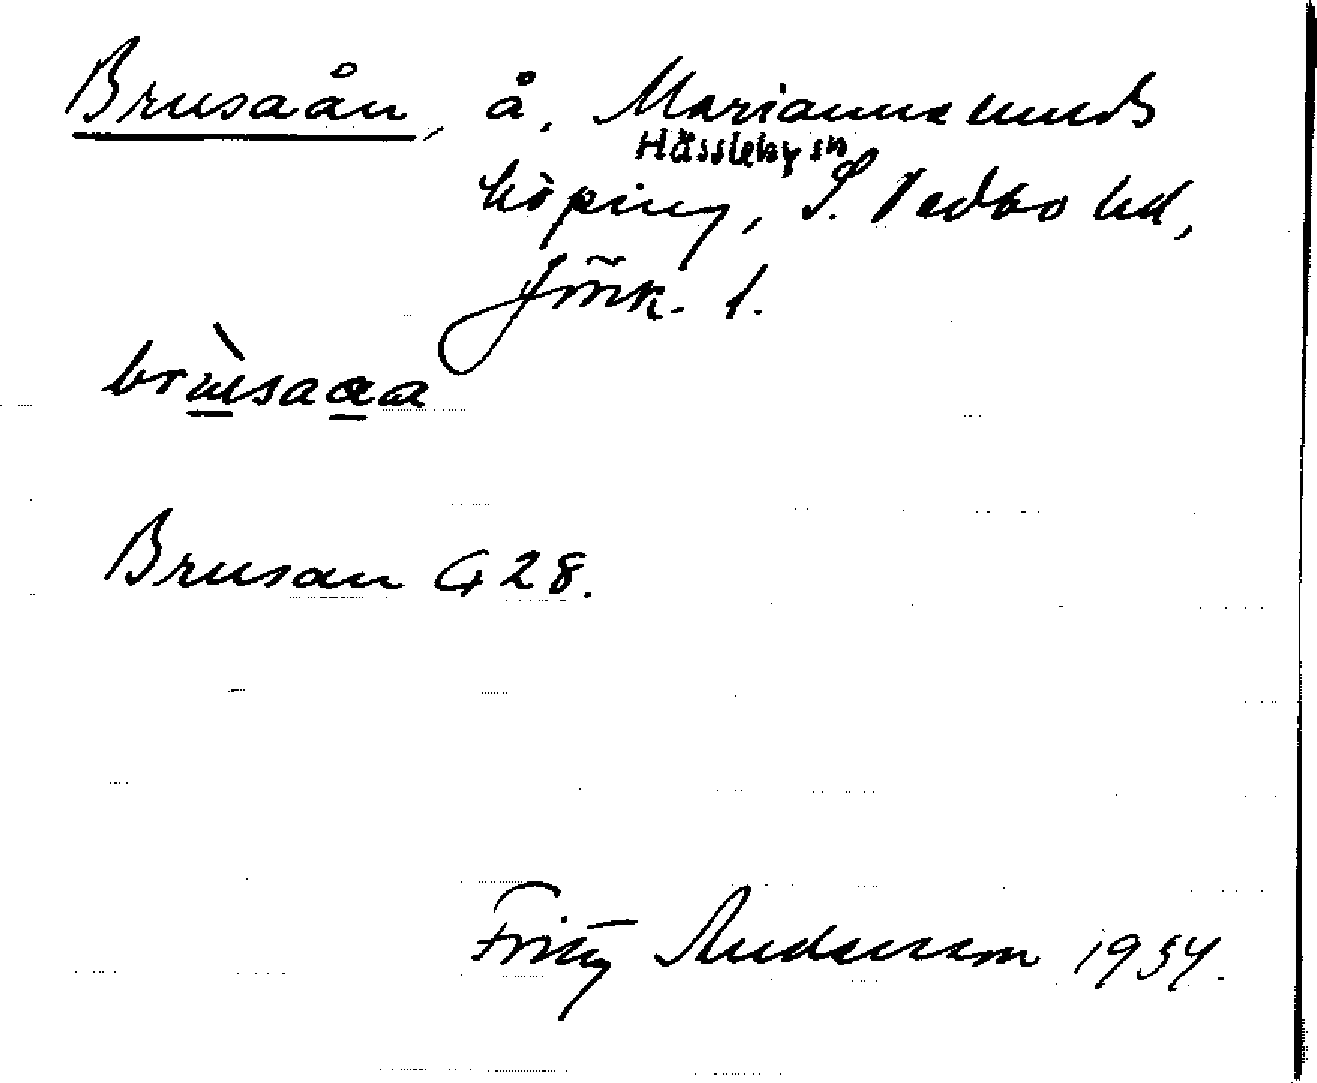 Brusaån, å, Mariannelunds
Hässleby sn
köping, S. Vedbo hd,
Jönk. l.
brùsaaa
Brusan G 28.
Fritz Andersson 1954.